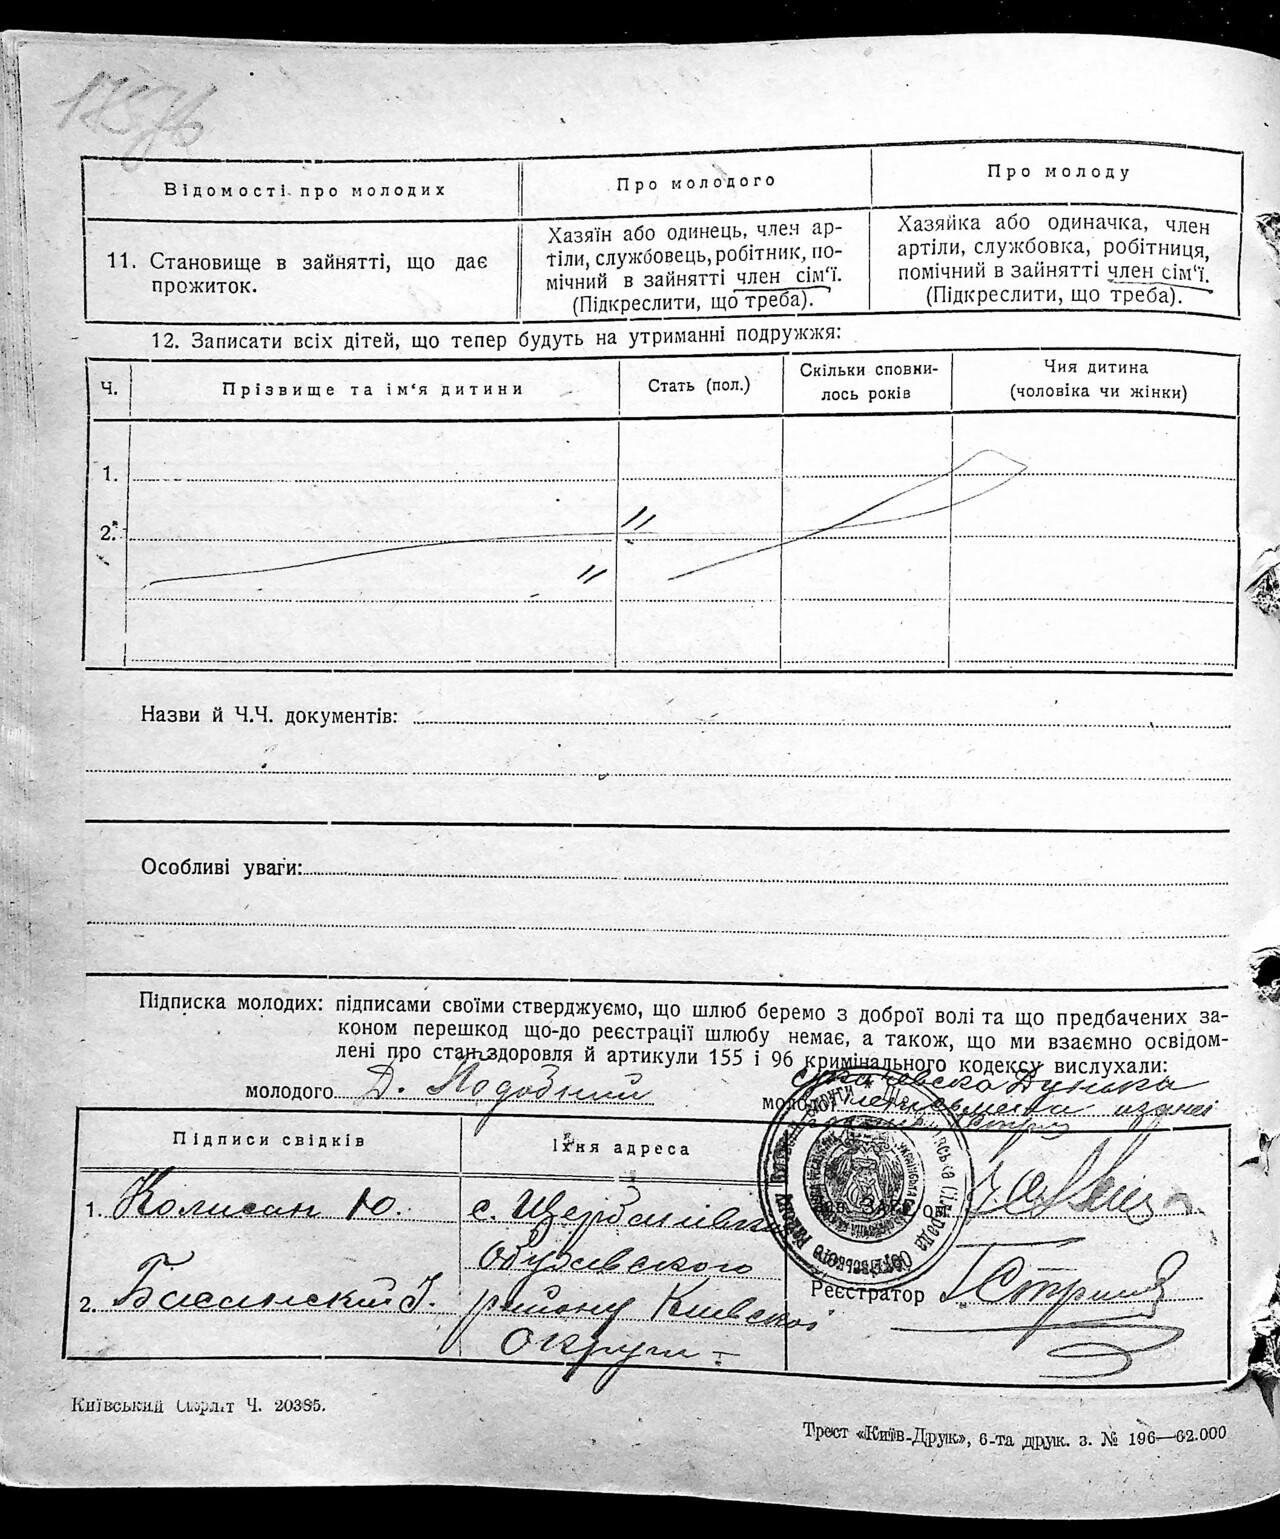 Відомості про молодих
Про молодого
Про молоду
11. Становище в зайнятті, що дає
прожиток.
Хазяїн або одинець, член ар-
тіли, службовець, робітник, по-
мічний в зайнятті член сім'ї.
(Підкреслити, що треба).
Хазяйка або одиначка, член
артіли, службовка, робітниця,
помічний в зайнятті член сім'ї.
(Підкреслити, що треба).
12. Записати всіх дітей, що тепер будуть на утриманні подружжя:
Ч.
Прізвище та ім'я дитини
Стать (пол.)
Скільки сповни-
лось років
Чия дитина
(чоловіка чи жінки)
1.
2.
Назви й Ч.Ч. документів:
Особливі уваги:
Підписка молодих: підписами своїми стверджуємо, що шлюб беремо з доброї волі та що предбачених за-
коном перешкод що-до реєстрації шлюбу немає, а також, що ми взаємно освідом-
лені про стан здоровля й артикули 155 і 96 кримінального кодексу вислухали:
молодого Д. Подобний
Підписи свідків
Їхня адреса
1. Колисан Ю.
с. Щербанівка
Обухівського
2.
району Київської
Округи
Реєстратор
Київський Окрліт Ч. 20385.
Трест «Київ-Друк», 6-та друк. з. № 196—62.000